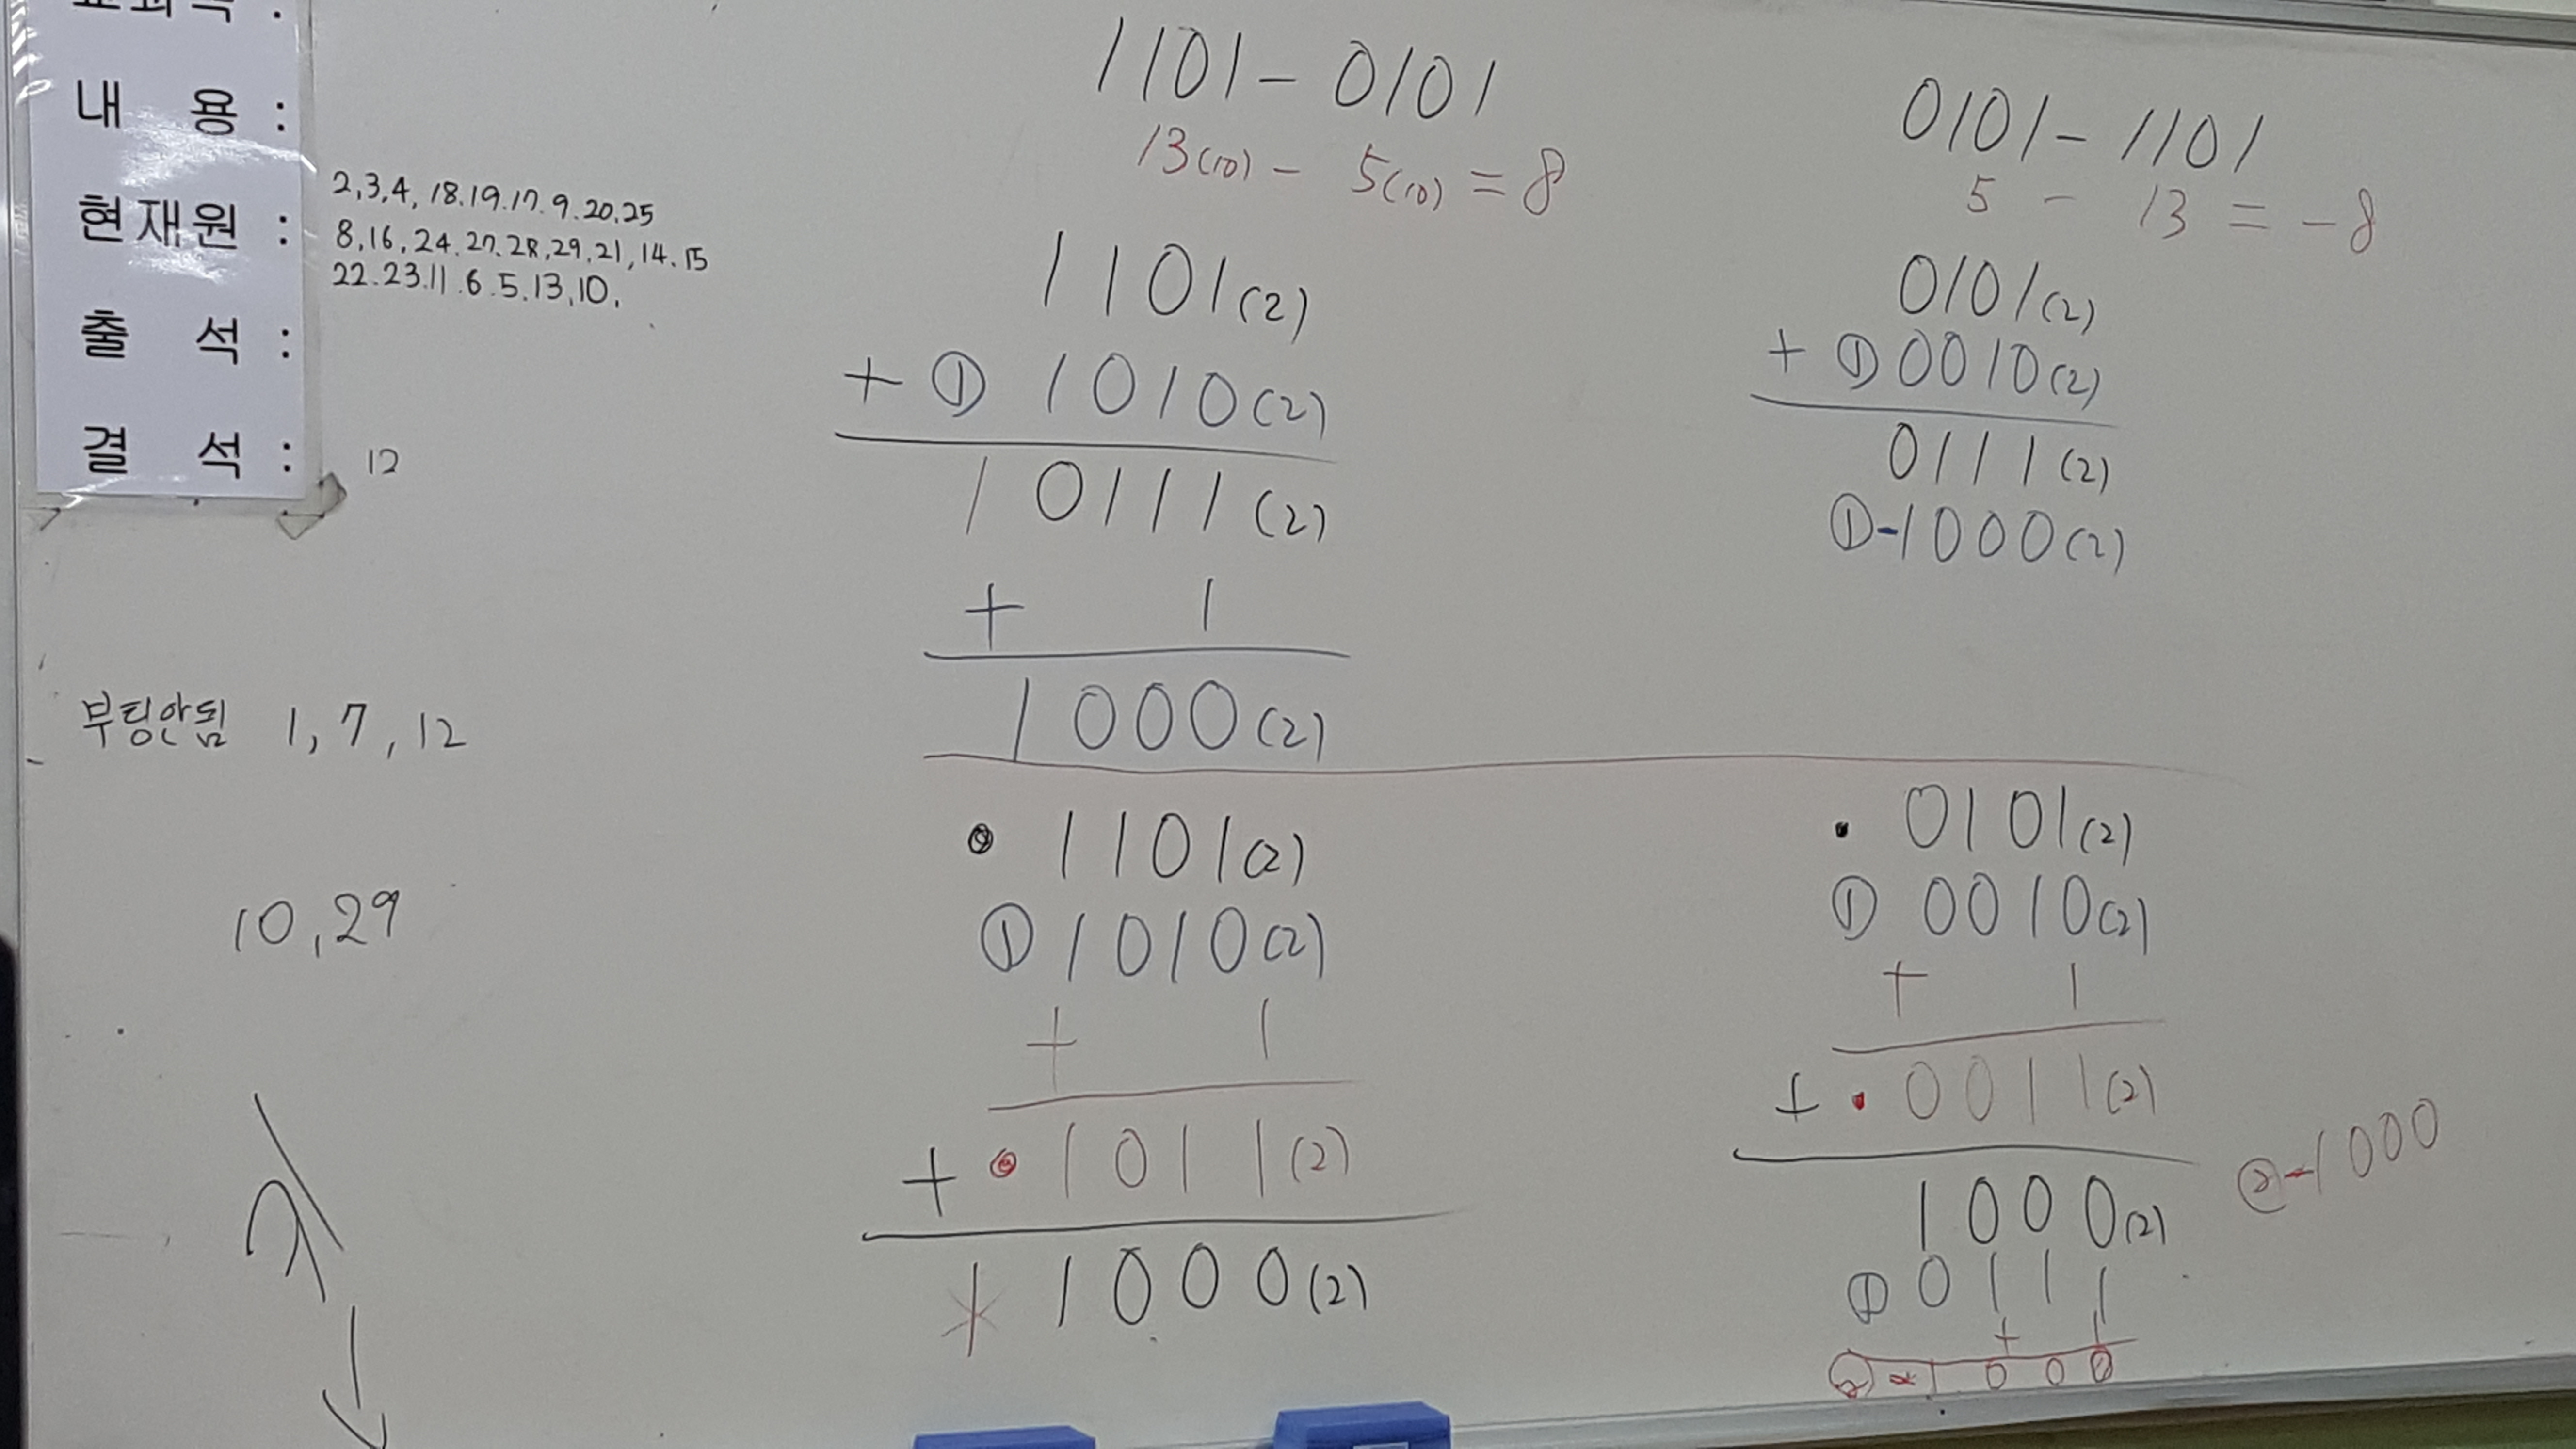 내 용 :
현재원 :
출 석 :
결 석 :
2,3,4, 18.19.17.9.20.25
8,16,24.27.28,29,21,14.15
22.23.11.6.5.13,10.
12
부팅안됨 1, 7, 12
10,29
1101 - 0101
13(10) - 5(10) = 8
1101(2)
+ ① 1010(2)
10111(2)
+ 1
1000(2)
1101(2)
① 1010(2)
+ 1
+ 1011(2)
1 1000(2)
0101 - 1101
5 - 13 = -8
0101(2)
+ ① 0010(2)
0111(2)
①-1000(2)
0101(2)
① 0010(2)
+ 1
+ 0011(2)
1000(2)
②-1000
① 0111
+ 1
②-1000